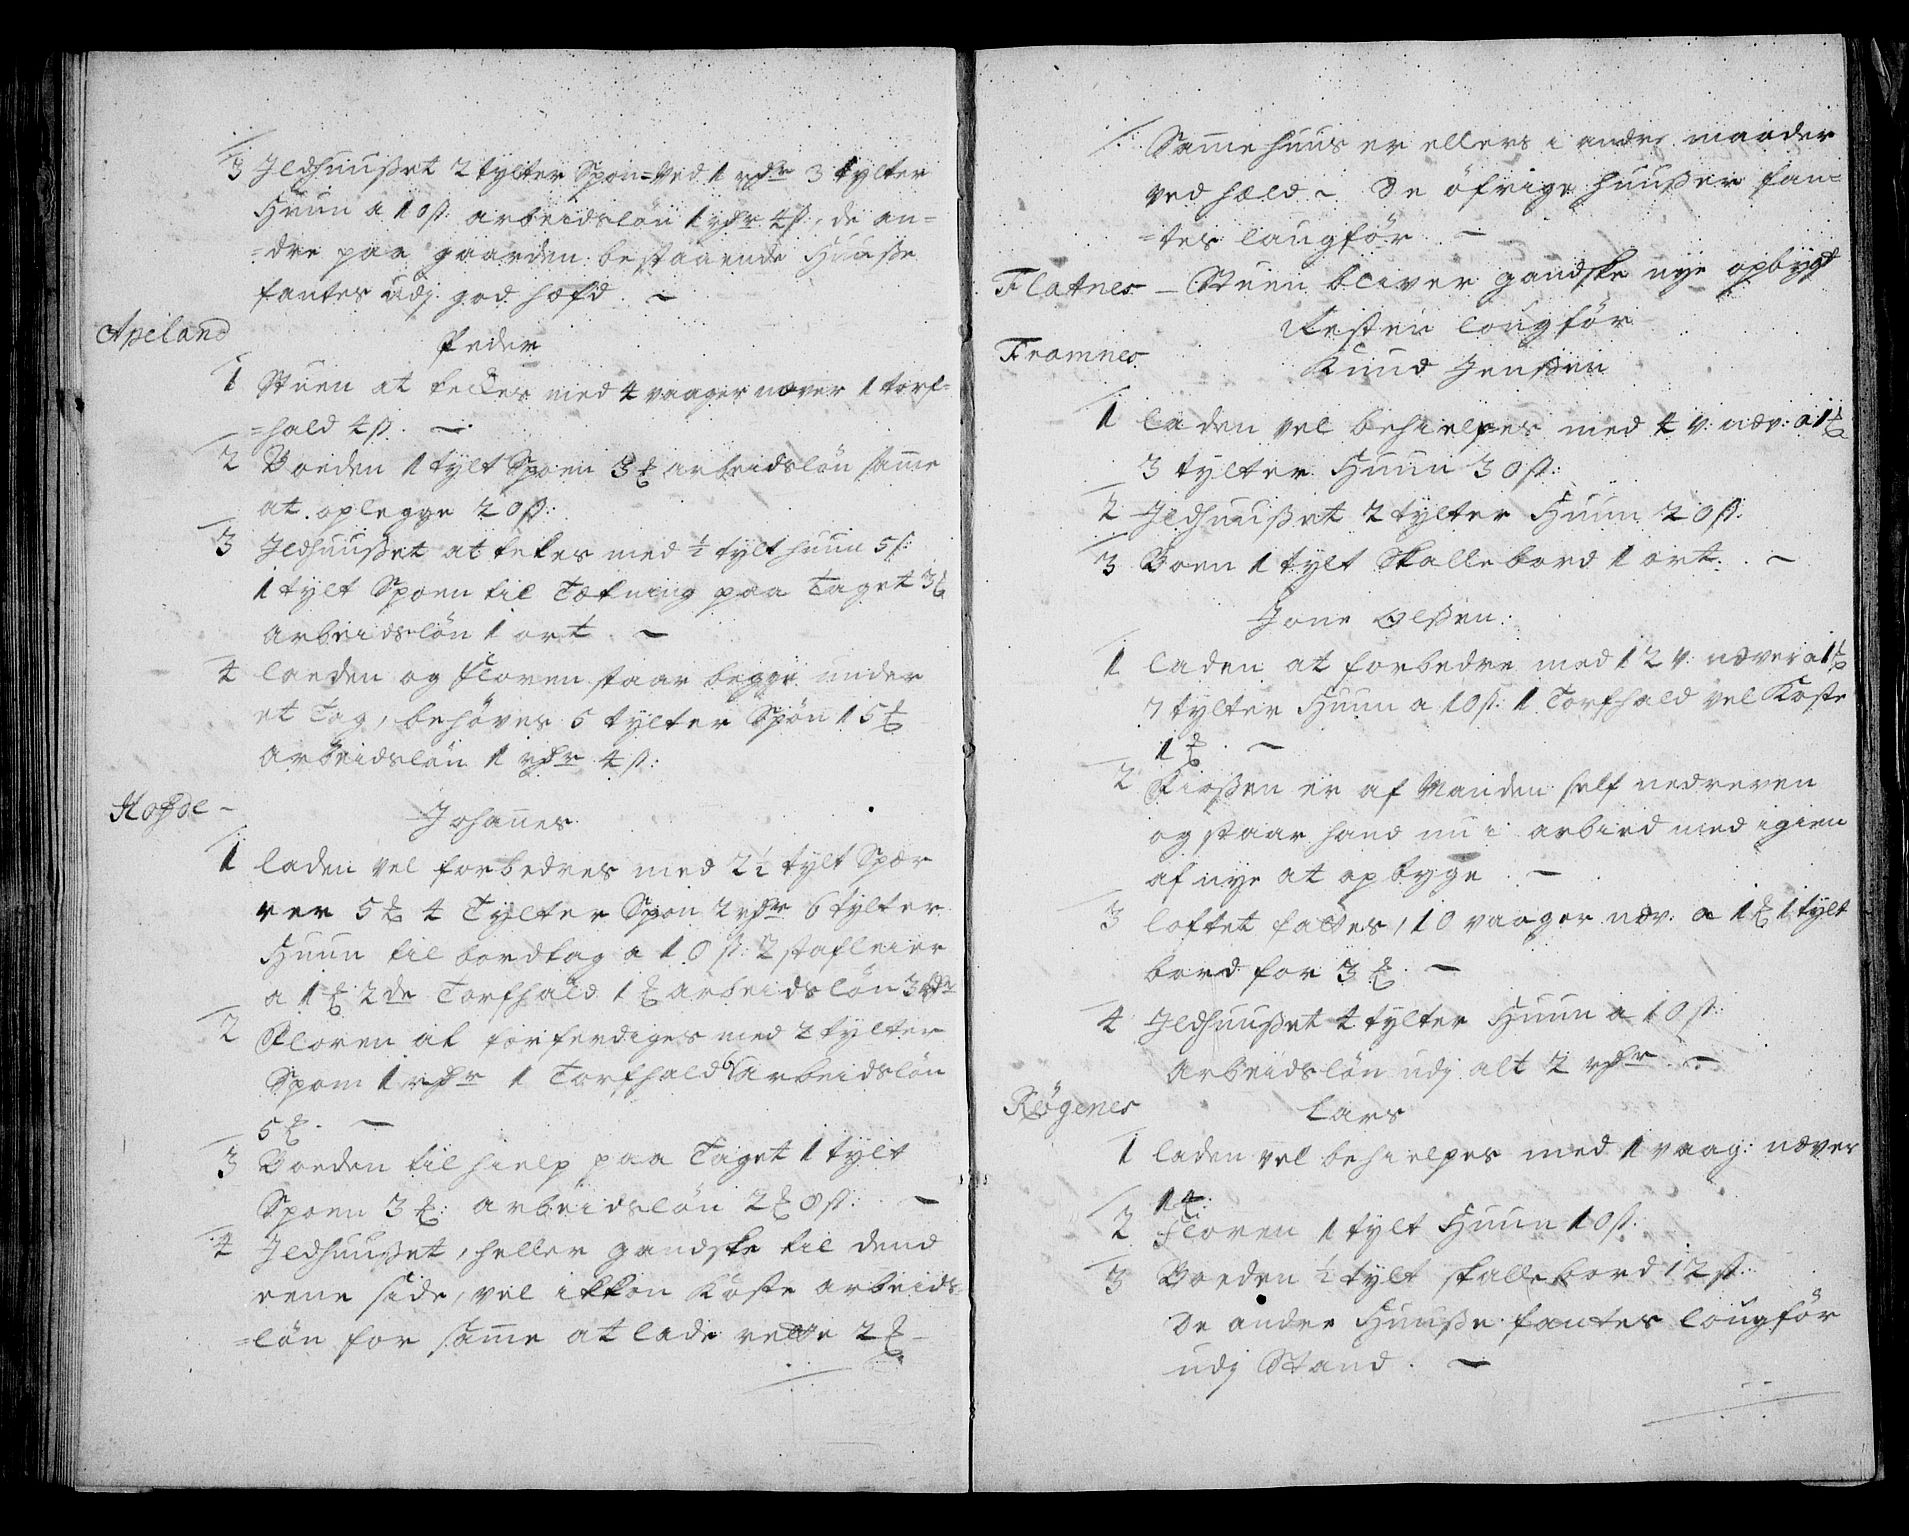 3 Jldhuußet 2 tylter Spon=Ved 1 rdr 3 tylter
Huun a 10 ß: arbeidsløn 1 rdr 4 ß, de an=
=dre paa gaarden bestaaende Huuße
fantes udj god hæfd. ~
Apeland
Peder
1 Stuen at tekkes med 4 vaager næver 1 torf=
=hald 4 ß. ~
2 Boeden 1 tylt Spoen 3 ₻ arbeidsløn same
at oplegge 20 ß:
3 Jldhuußet at tekes med ½ tylt huun 5 ß:
1 tylt Spoen til Tætning paa Taget 3 ₻
arbeidsløn 1 ort. ~
4 laeden og floren staar begge under
et Tag, behøves 5 tylter Spøn 15 ₻
arbeidsløn 1 rdr 4 ß:
Johanes
1 laden vel forbedres med 2½ tylt Spær
rer 5 ₻ 4 Tylter Spon 2 rdr 6 tylter
Huun til bordtag a 10 ß: 2 stafleier
a 1 ₻ 2de Torfhald 1 ₻ arbeidsløn 3 rdr
2 Floren at forferdiges med 2 tylter
Spoen 1 rdr 1 Torfhald arbeidsløn
5 ₻. ~
3 Boeden til hielp paa Taget 1 tylt
Spoen 3 ₻: arbeidsløn 2 ₻ 8 ß: ~
4 Jldhuußet, heller gandske til dend
eene side, vel ikkon koste arbeids=
=løn for same at lade rette 2 ₻ ~
/: Same huus er ellers i andre maader
ved hæld ~ De øfrige huußer fan=
=tes laugfør. ~
Flatnes — Stuen bliver gandske nye opbygt
Resten lougfør
Framnes.
Knud Jenßen
1 laden vel behielpes med 4 v: næv: a 1 ₻
3 tylter Huun 30 ß:
2 Jldhuußet 2 tylter Huun 20 ß:
3 Boen 1 tylt Skallebord 1 ort. ~
Jone Olßen:
1 laden at forbedre med 12 v: næver a 1 ₻
7 tylter Huun a 10 ß: 1 Torfhald vel Koste
1 ₻. ~
2 er af Manden self nedreven
og staar hand nu i arbied med igien
af nye at opbyge. ~
3 loftet fattes, 10 vaager næv: a 1 ₻ 1 tylt
bord for 3 ₻. ~
4 Jldhuußet 4 tylter Huun a 10 ß:
arbeidsløn udj alt 2 rdr. ~
Røgenes
Lars
1 laden vel behielpes med 1 vaag: næver
1 ₻:
2 Floren 1 tylt Huun 10 ß:
3 Boeden ½ tylt skallebord 12 ß:
De andre Huuße fantes lougfør
udj Stand. ~